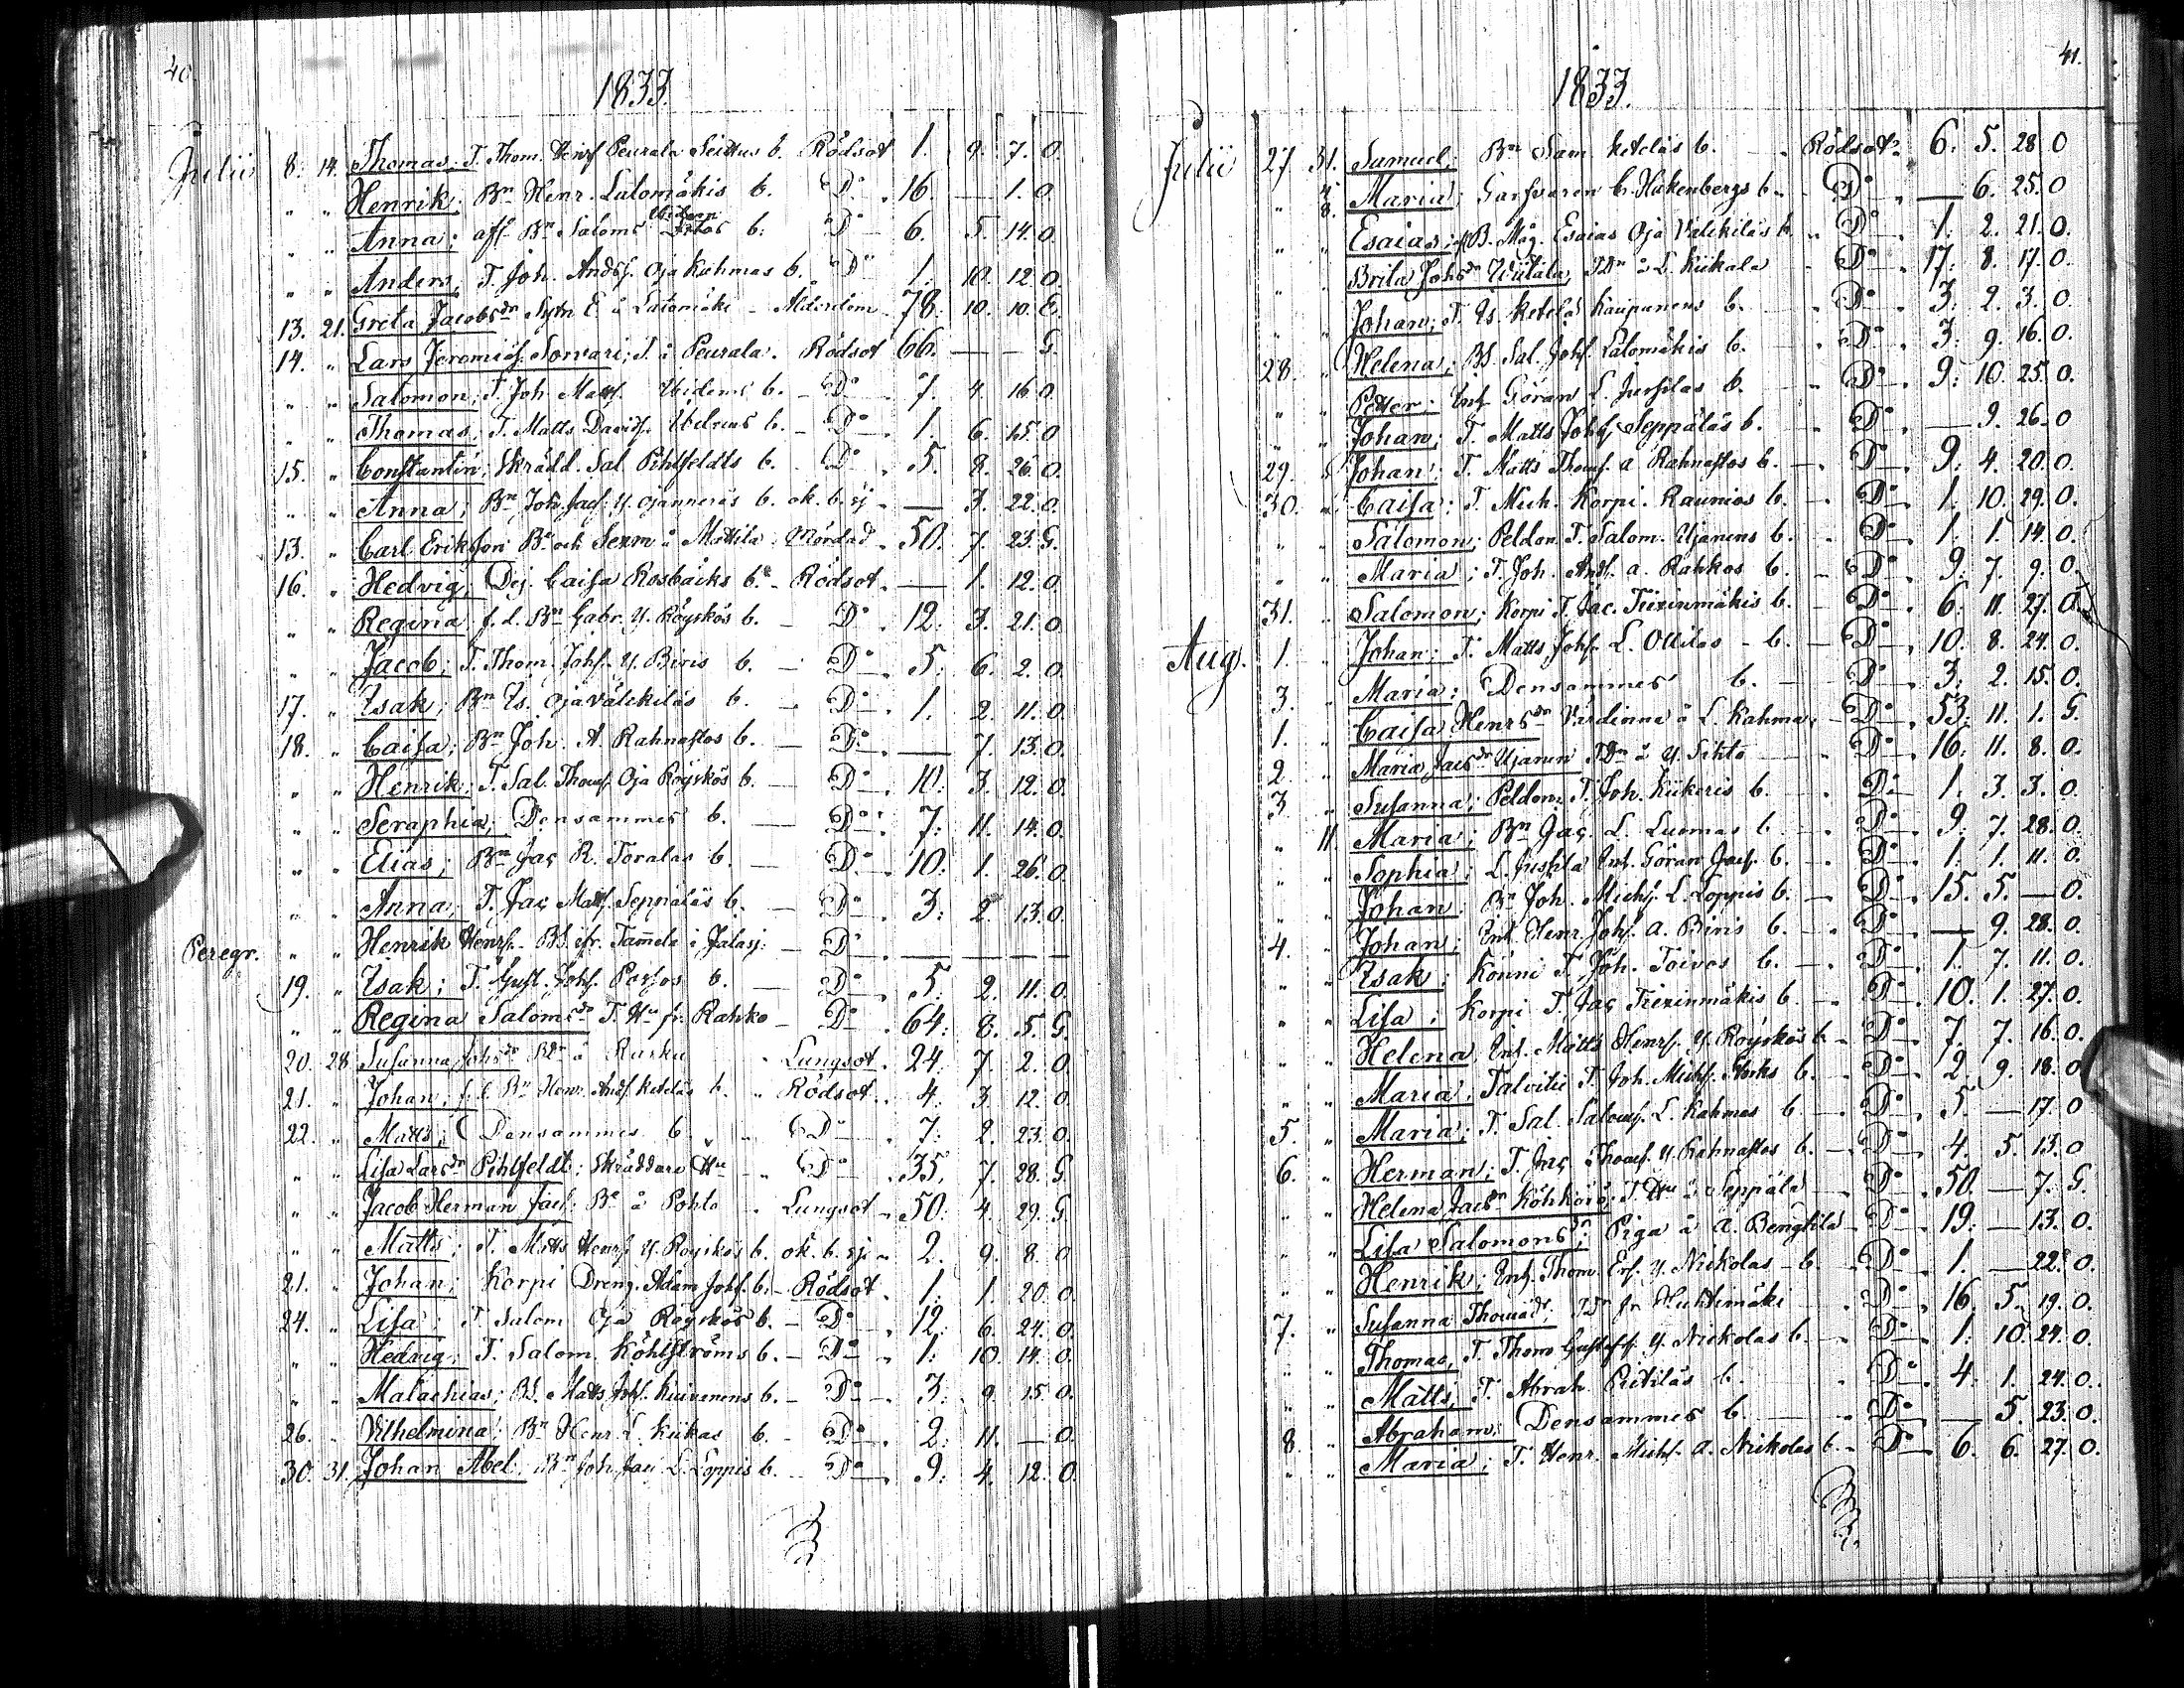 40.
1833.
Julii 8. 14. Thomas; T. Thom. Henrs. Peurala Seittus b. Rödsot 1. 9. 7. O.
" " Henrik; Bn Henr. Lalomäkis b. Do 16. — 1. O.
" " Anna; aff. Bn Saloms b. Do 6. 5. 14. O.
" " Anders; T. Joh. Andsf. Oja Kahmas b. Do 1. 10. 12. O.
13. 21. Greta Jacobsdr Sytn E. å Lalomäki - Ålderdom 78. 10. 10. E.
14. " Lars Jeremiæs. Sorvari; T. i Peurala. Rödsot 66. — — G.
" " Salomon; T. Joh. Matts. b. Do 7. 4. 16. O.
" " Thomas; T. Matts Davids. b. Do 1. 6. 15. O
15. " Constantin; Skrädd. Sal. Pihlfeldts b. Do 5. 8. 26. O.
" " Anna; Bn Joh. Jacs. Y. Ojanperäs b. ok. b. sj — 3. 22. O.
13. " Carl Eriksson Be och Sexm å Mattila Mördad 50. 7. 23. G.
16. " Hedvig; Dej. Caisa Rosbacks b. Rödsot — 1. 12. O.
" " Regina f. d. Bn Gabr. Y. Röyskös b. — Do 12. 3. 21. O
" " Jacob; T. Thom. Johs. Y. Biris b. — Do 5. 6. 2. O
17. " Isak; Bn Is. Oja Välikiläs b. — Do 1. 2. 11. O
18. " Caisa; Bn Joh. A. Rahnastos b. — Do — 7. 13. O.
" " Henrik; T. Sal. Thoms. Oja Röyskös b. — Do 10. 3. 12. O.
" " Seraphia; Densammes b. — Do 7. 11. 14. O.
" " Elias; Bn Jac R. Toralas b. — Do 10. 1. 26. O
" " Anna; T. Jac Matts. Seppäläs b. — Do 3. 2. 13. O
Peregr. " " Henrik Henrs. BS. ifr. Tam̄ela i Jalasj: — Do — — — —
19. " Isak; T. Gust. Johs. Pasjos b. — Do 5. 2. 11. O.
" " Regina Salomsdr T. Hu fr. Rahko — Do 64. 8. 5. G.
20. 28. Susanna Johsdr BDr å Rasku Lungsot. 24. 7. 2. O.
21. " Johan; f. d. Bn Henr. Ands. Ketoläs b. " Rödsot. 4. 3. 12. O.
22. " Matts; Densammes b. Do 7. 2. 23. O.
" " Lisa Larsdr Pihlfeldt; Skräddare Hu Do 35. 7. 28. G.
" " Jacob Herman Jacs. Be å Pohto Lungsot 50. 4. 29. G.
" " Matts; T. Matts Henrs. Y. Röyskös b. ok. b. sj. 2. 9. 8. O
21. " Johan; Korpi Dreng. Adam Johs. b. Rödsot. 1. 1. 20. O
24. " Lisa; T. Salom. Oja Röyskös b. Do 12. 6. 24. O.
" " Hedvig; T. Salom. Kohlströms b. — Do 1. 10. 14. O.
" " Malachias; BS. Matts Johs. Kuivinens b. — Do 3. 9. 15. O.
26. " Vilhelmina; Bn Henr. L. Kiikas b. — Do 2. 11. — O.
30. 31. Johan Abel; Bn Joh. Jacs. L. Loppis b. Do 9. 4. 12. O.
41.
1833.
Julii 27. 31. Samuel; Bn Sam. Ketoläs b. Rödsot. 6. 5. 28. O
" 4/8. Maria; Garfvaren C. Hakenbergs b. Do — 6. 25. O
" " Esaias; B. Måg. Esaias Oja Välikiläs b. Do 1. 2. 21. O.
" " Brita Johsdr Wiitala, TDr å L. Kiikala Do 17. 8. 17. O.
" " Johan; T. Is. Ketola Kaupanens b. Do 3. 2. 3. O.
28. " Helena; BS. Sal. Johs. Lalomäkis b. Do 3. 9. 16. O.
" " Petter; Inh. Göran L. Jussilas b. Do 9. 10. 25. O.
" " Johan; T. Matts Johs. Seppäläs b. Do — 9. 26. O
29. " Johan; T. Matts Thoms. A. Rahnastos b. — Do 9. 4. 20. O.
30. " Caisa; T. Mich. Korpi Raunios b. — Do 1. 10. 29. O.
" " Salomon; Peldon. T. Salom. Ujanens b. Do 1. 1. 14. O.
" " Maria; T. Joh. Ands. A. Rahkos b. — Do 9. 7. 9. O.
31. " Salomon; Korpi T. Jac. Tiisinmäkis b. — Do 6. 11. 27. O.
Aug. 1. " Johan; T. Matts Johs. L. Ollilas b. — Do 10. 8. 24. O.
3. " Maria; Densammes b. — Do 3. 2. 15. O.
1. " Caisa Henrsdr Värdinna å L. Kahma, — Do 53. 11. 1. G.
2. " Maria Jacsdr Ujanen TDr å Y. Sihto Do 16. 11. 8. O.
3. " Susanna; Peldon. T. Joh. Kiikeris b. Do 1. 3. 3. O.
" 11. Maria; Bn Jac. L. Luomas b. Do 9. 7. 28. O.
" " Sophia; L. Jussila Inh. Göran Jacs. b. Do 1. 1. 11. O.
" " Johan; Bn Joh. Michs. L. Loppis b. — Do 15. 5. — O.
4. " Johan; Inh. Henr. Johs. A. Biris b. Do — 9. 28. O.
" " Isak; Könni T. Joh. Toivos b. — Do 1. 7. 11. O.
" " Lisa; Korpi T. Jac Tiisinmäkis b. Do 10. 1. 27. O.
" " Helena Inh. Matts Henrs. Y. Röyskös b. — Do 7. 7. 16. O.
" " Maria; Talvitie T. Joh. Michs. b. — Do 2. 9. 18. O
5. " Maria; T. Sal. Saloms. L. Kahmas b. — Do 5. — 17. O
6. " Herman; T. Jac Thoms. Y. Rahnastos b. — Do 4. 5. 13. O
" " Helena Jacsdr Köhkörö; T. Hu å Seppälä Do 50. — 7. G.
" " Lisa Salomonsdr; Piga å A. Bengtila — Do 19. — 13. O.
" " Henrik; Inh. Thom. Ers. Y. Nickolas b. Do 1. — 22. O.
7. " Susanna Thomædr. TDr fr. Huhtimäki Do 16. 5. 19. O.
" " Thomas, T. Thom Gustafs. Y. Nickolas b. Do 1. 10. 24. O.
" " Matts; T. Abrah. Pitiläs b. Do 4. 1. 24. O.
8. " Abraham; Densammes b. Do — 5. 23. O.
" " Maria; T. Henr. Michs. A. Nickolas b. Do 6. 6. 27. O.